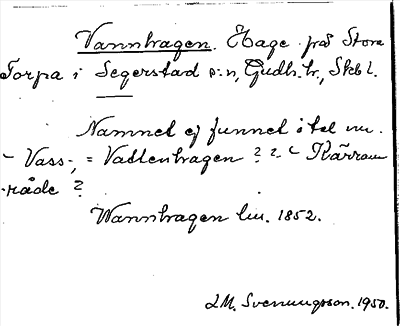 Vannhagen. Hage på Stora
Torpa i Segerstad s:n, Gudh. hr, Skbl.
Namnet ej funnet i tal nu.
Vass-, = Vattenhagen? ?
område?
Wannhagen lm. 1852.
LM. Svenungsson. 1950.